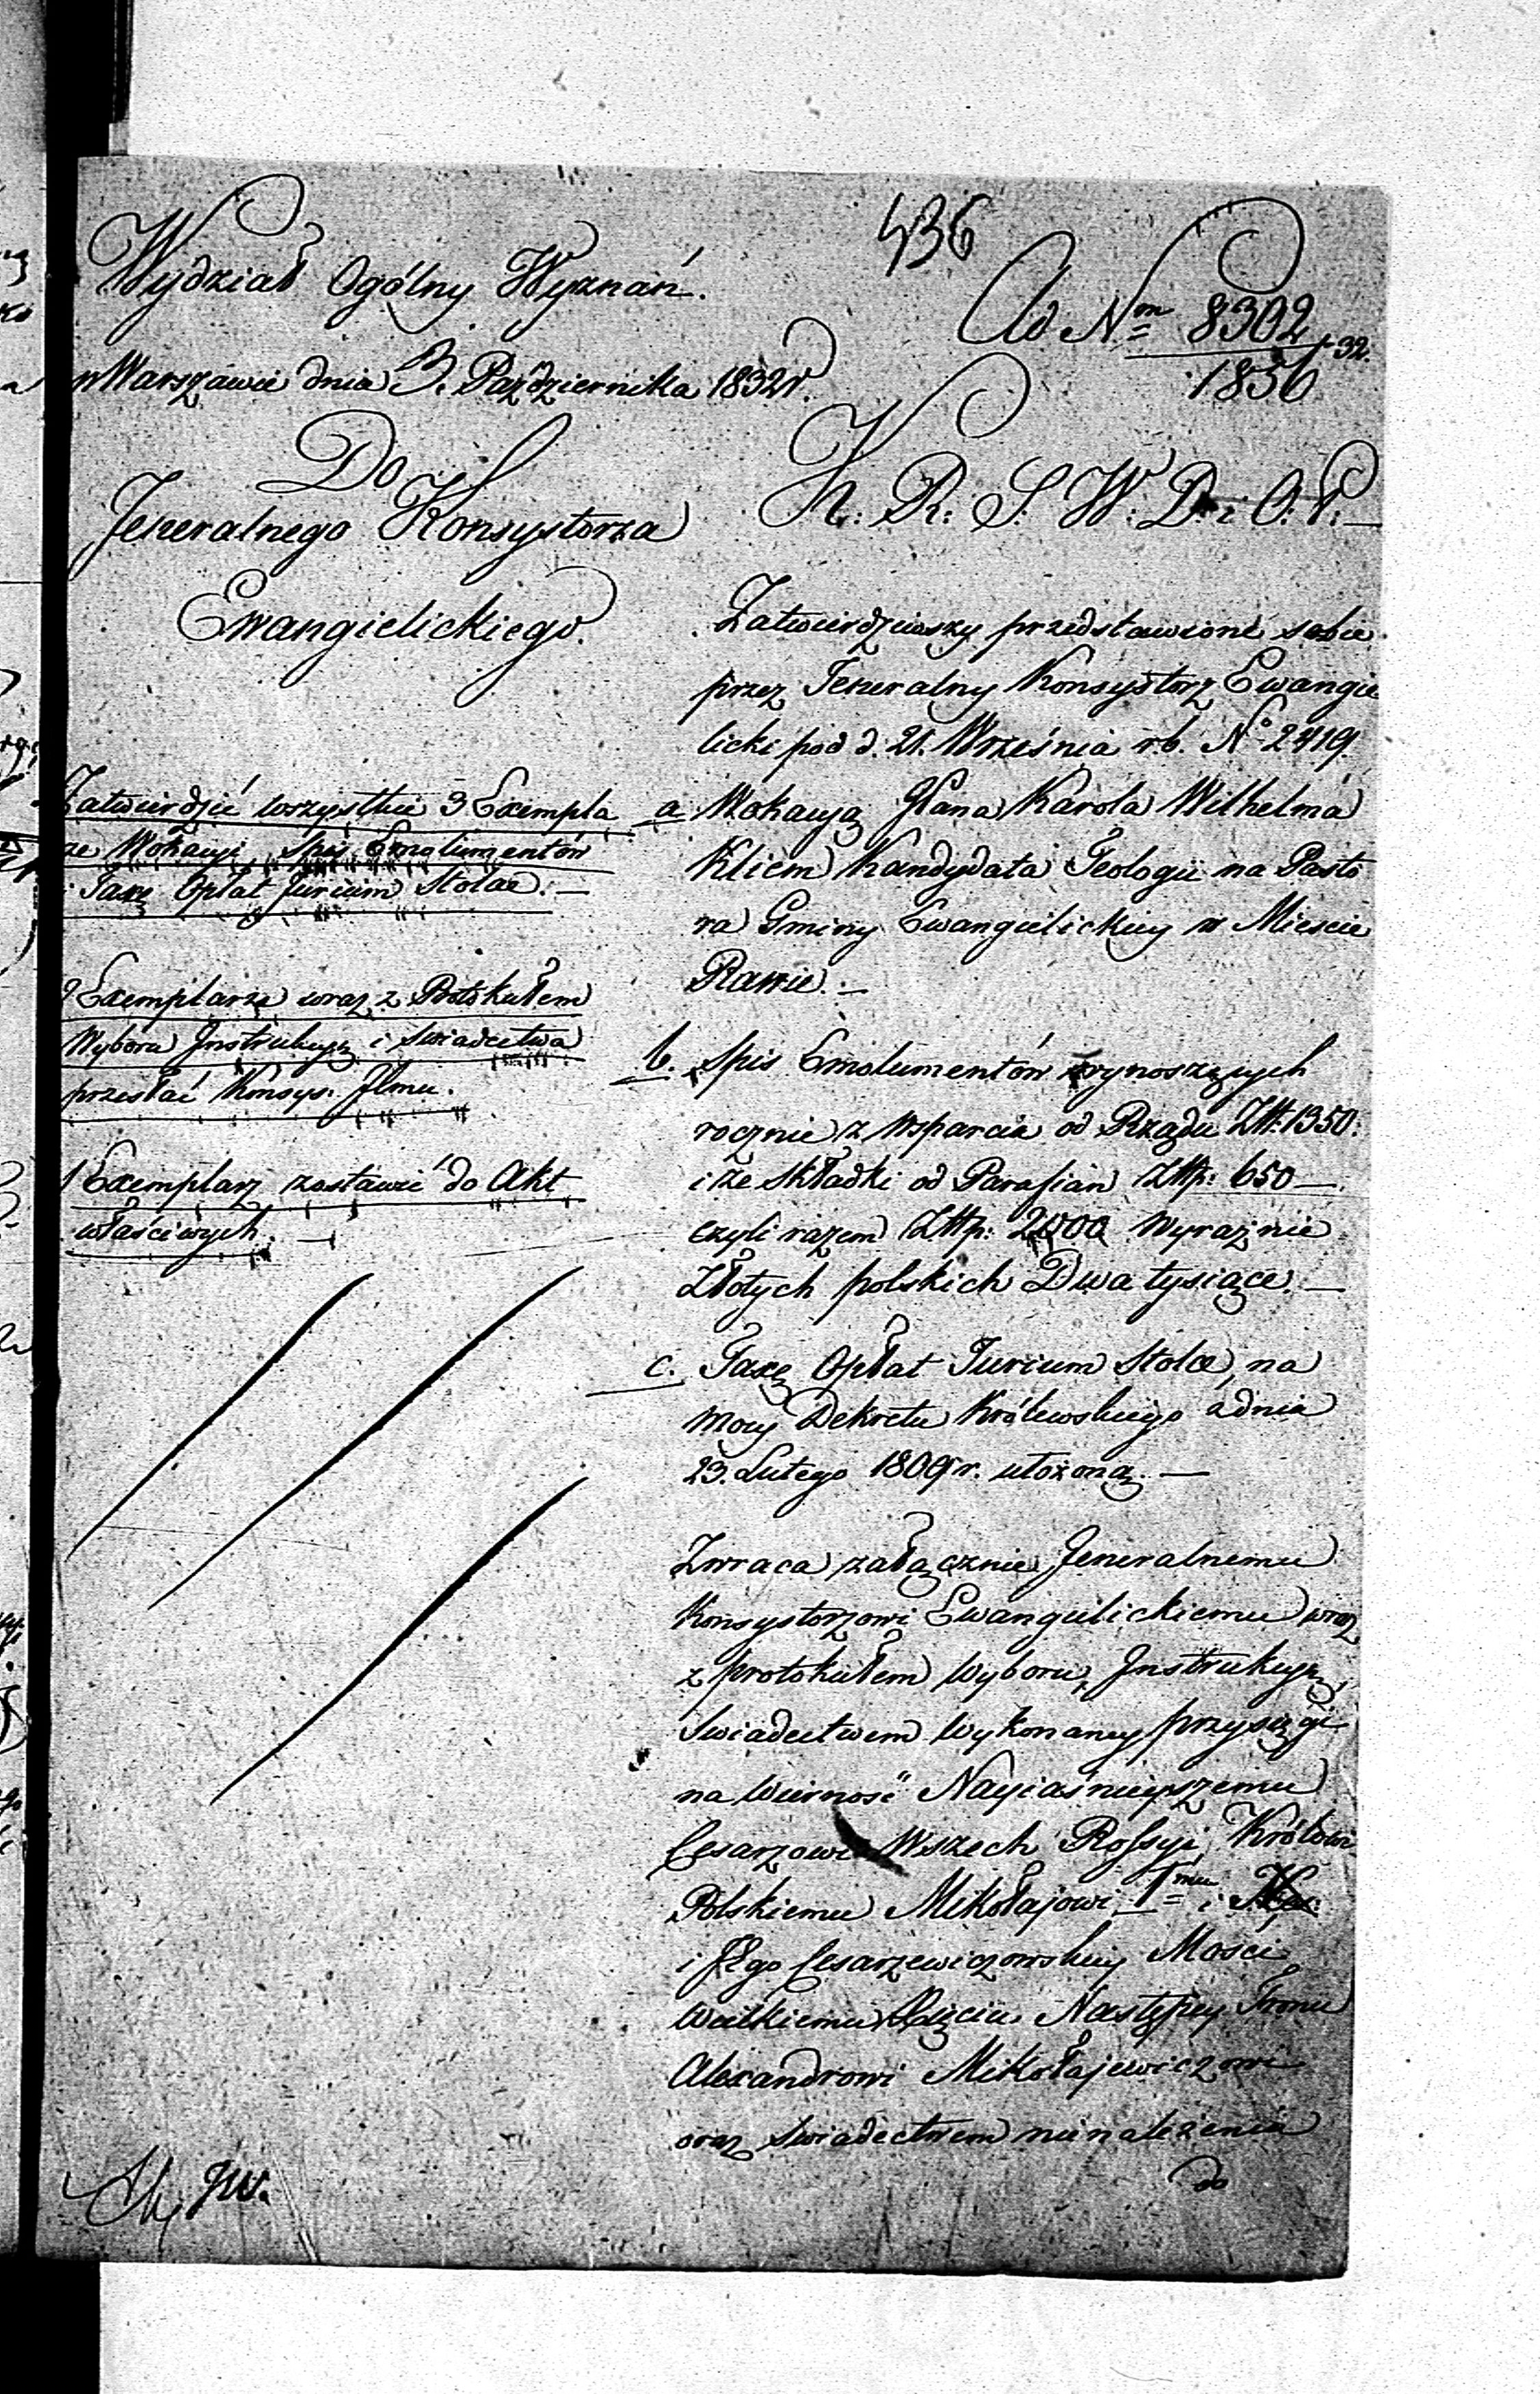 436
Wydział Ogólny Wyznań.
Ad Nrn 8302/1856 -32.
w Warszawie dnia 3. Października 1832 r.
Do
Jeneralnego Konsystorza
Ewangielickiego.
K: R: S: W: D: i O: P:—
Zatwierdziwszy przedstawione sobie
przez Jeneralny Konsystorz Ewangie
licki pod d. 21. Września rb. No 2419.
a Wokacyą Pana Karola Wilhelma
Kliem Kandydata Teologii na Pasto
ra Gminy Ewangielickiey w Miescie
Rawie.—
b. Spis Emolumentów wynoszących
rocznie z wsparcia od Rządu Złt: 1350.
i ze składki od Parafian Złtp: 650—
czyli razem Złtp: 2000 wyraźnie
Złotych polskich Dwa tysiące.—
c. Taxę Opłat Jurium Stolæ, na
mocy Dekretu Królewskiego z dnia
23. Lutego 1809 r. ułożoną.—
Zwraca załącznie Jeneralnemu
Konsystorzowi Ewangielickiemu wraz
z protokułem wyboru, Instrukcyą,
świadectwem wykonaney przysięgi
na wierność Nayiaśnieyszemu
Cesarzowi Wszech Rossyi, Królowi
Polskiemu Mikołajowi Imu i
i JEgo Cesarzewiczowskiey Mości
Wielkiemu Xięciu Następcy Tronu
Alexandrowi Mikołajewiczowi
oraz świadectwem nienależenia
do
Zatwierdzić wszystkie 3 Exempla
rze Wokacyi, Spis Emolumentów
i Taxę Opłat Jurium Stolae.—
2 Exemplarze wraz z Protokułem
Wyboru Instrukcyą i świadectwa
przesłać Konsys. Jlmu.
1 Exemplarz zostawić do Akt
właściwych.—